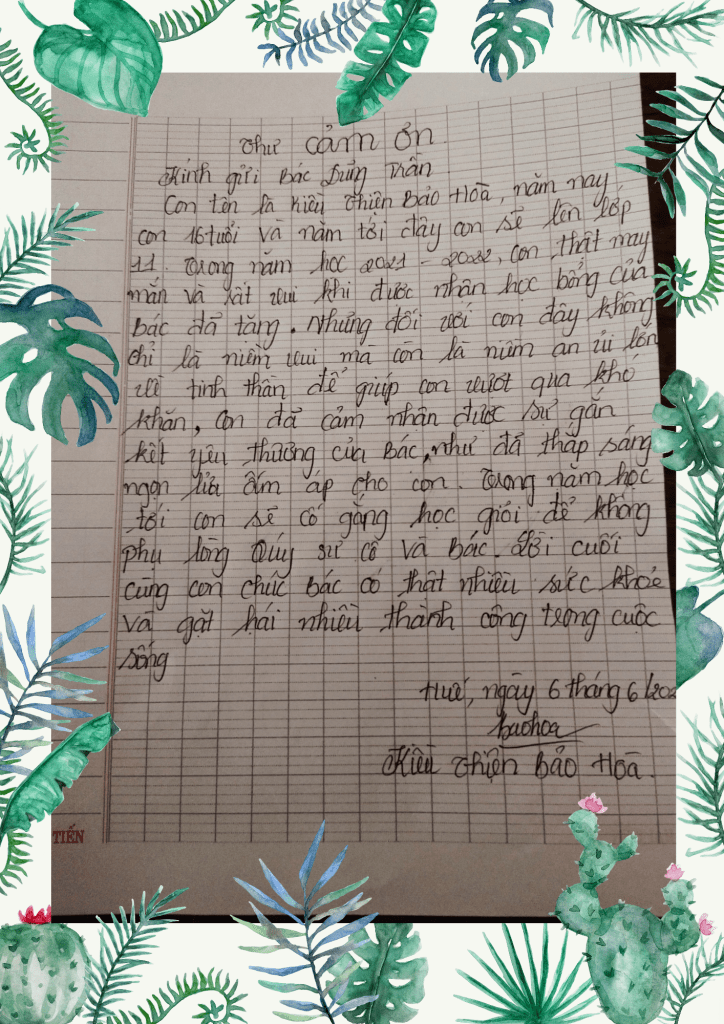 Thư cảm ơn
Kính gửi Bác Dũng Trần
Con tên là Kiều Thiện Bảo Hoà, năm nay
con 16 tuổi và năm tới đây con sẽ lên lớp
11. Trong năm học 2021 - 2022, con thật may
mắn và rất vui khi được nhận học bổng của
Bác đã tặng. Nhưng đối với con đây không
chỉ là niềm vui mà còn là niềm an ủi lớn
về tinh thần để giúp con vượt qua khó
khăn, con đã cảm nhận được sự gắn
kết yêu thương của Bác, như đã thắp sáng
ngọn lửa ấm áp cho con. Trong năm học
tới con sẽ cố gắng học giỏi để không
phụ lòng Qúy sư cô và Bác. Lời cuối
cùng con chúc Bác có thật nhiều sức khoẻ
và gặt hái nhiều thành công trong cuộc
sống
Huế, ngày 6 tháng 6
baohoa
Kiều Thiện Bảo Hoà.
TIẾN